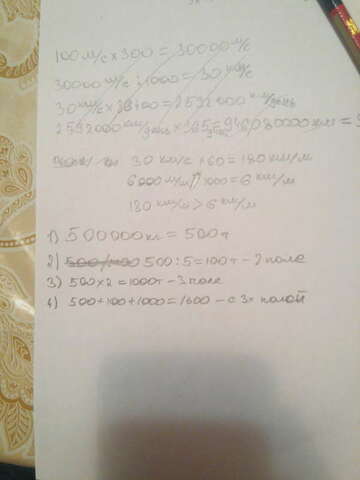 100 м/с × 300 = 30000 м/с
30000 м/с : 1000 = 30 км/с
30 км/с × = 2592000 км/день
2592000 км/день × 365 = 946080000 км =
30 км/с × 60 = 180 км/м
6000 м/м : 1000 = 6 км/м
180 км/м > 6 км/м
1) 500000 кг = 500 т
2) 500 : 5 = 100 т - 2 поле
3) 500 × 2 = 1000 т - 3 поле
4) 500 + 100 + 1000 = 1600 - с 3х полей